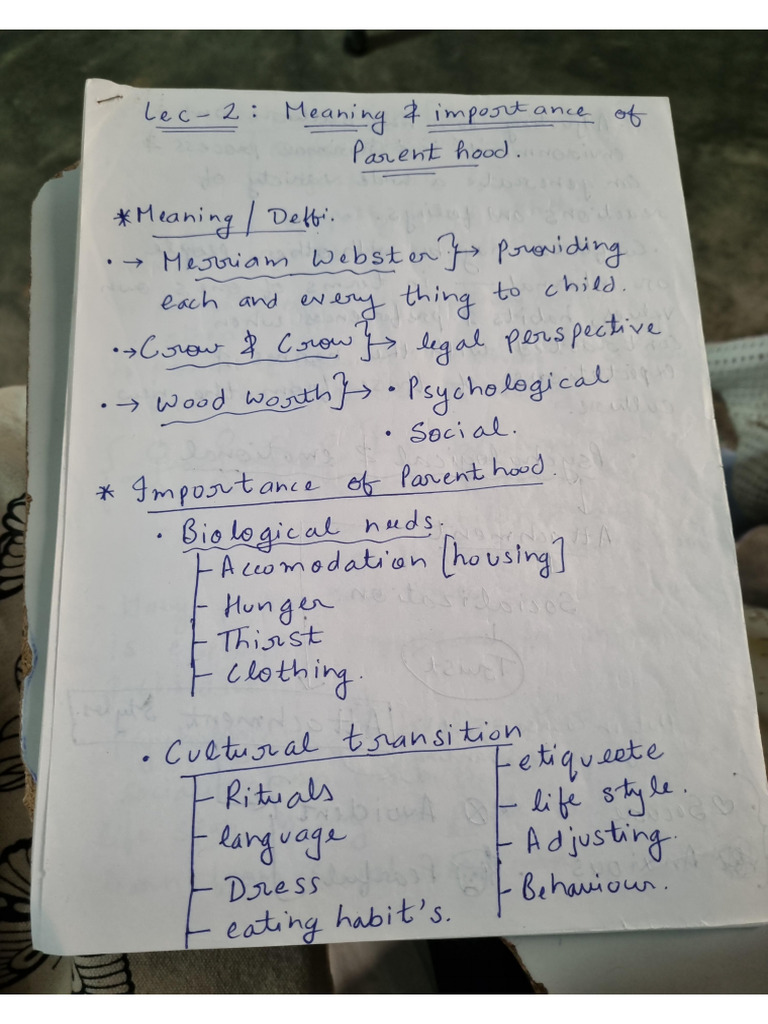 Lec-2: Meaning & importance of
Parent hood.
*Meaning / Deffi.
• → Merriam Webster } → providing
each and every thing to child.
• → Crow & Crow } → legal perspective
• → Wood Worth } → • Psychological
• Social.
* Importance of Parent hood.
• Biological needs.
- Accomodation [housing]
- Hunger
- Thirst
- Clothing.
• Cultural transition
- Rituals
- language
- Dress
- eating habit's.
- etiqueete
- life style.
- Adjusting.
- Behaviour.